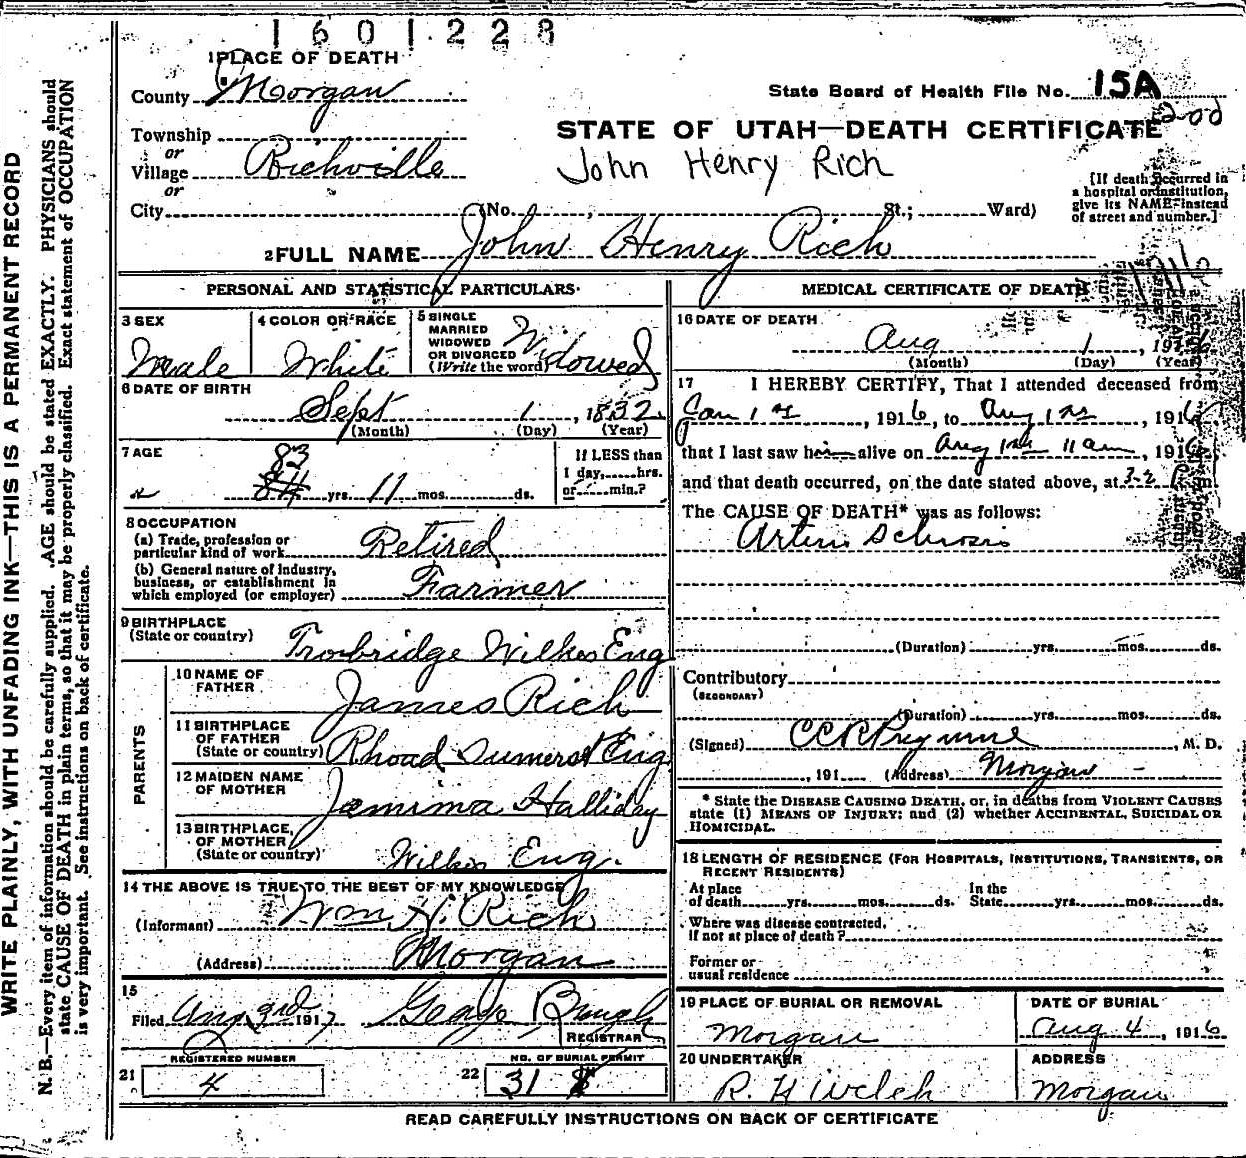 1601223
1 PLACE OF DEATH
County Morgan
State Board of Health File No. 15A
200
Township
or
Village Richville
or
City (No. , St.; Ward)
STATE OF UTAH—DEATH CERTIFICATE
John Henry Rich
[If death occurred in
a hospital or institution,
give its NAME instead
of street and number.]
2 FULL NAME John Henry Rich
1916
PERSONAL AND STATISTICAL PARTICULARS
3 SEX
Male
4 COLOR OR RACE
White
5 SINGLE
MARRIED
WIDOWED
OR DIVORCED
(Write the word) Widowed
6 DATE OF BIRTH
Sept 1, 1832
(Month) (Day) (Year)
7 AGE
83
84 yrs. 11 mos. ds.
If LESS than
1 day, hrs.
or min.?
8 OCCUPATION
(a) Trade, profession or
particular kind of work Retired
(b) General nature of industry,
business, or establishment in
which employed (or employer) Farmer
9 BIRTHPLACE
(State or country) Trobridge Wilkes Eng
PARENTS
10 NAME OF
FATHER James Rich
11 BIRTHPLACE
OF FATHER
(State or country) Rhoad Sumerset Eng
12 MAIDEN NAME
OF MOTHER Jemima Halliday
13 BIRTHPLACE
OF MOTHER
(State or country) Wilkes Eng.
14 THE ABOVE IS TRUE TO THE BEST OF MY KNOWLEDGE
(Informant) Wm H. Rich
(Address) Morgan
15
Filed Aug 3rd 1917 George Brough
REGISTRAR
REGISTERED NUMBER
21 4
NO. OF BURIAL PERMIT
22 31
MEDICAL CERTIFICATE OF DEATH
16 DATE OF DEATH
Aug 1, 1916
(Month) (Day) (Year)
17 I HEREBY CERTIFY, That I attended deceased from
Jan 1st, 1916, to Aug 1st, 1916
that I last saw him alive on Aug 1st 11 am, 1916
and that death occurred, on the date stated above, at
The CAUSE OF DEATH* was as follows:
Arterio Sclerosis
(Duration) yrs. mos. ds.
Contributory
(SECONDARY)
(Duration) yrs. mos. ds.
(Signed) , M. D.
, 191 (Address) Morgan
* State the DISEASE CAUSING DEATH, or, in deaths from VIOLENT CAUSES
state (1) MEANS OF INJURY; and (2) whether ACCIDENTAL, SUICIDAL OR
HOMICIDAL.
18 LENGTH OF RESIDENCE (FOR HOSPITALS, INSTITUTIONS, TRANSIENTS, OR
RECENT RESIDENTS)
At place
of death yrs. mos. ds.
In the
State yrs. mos. ds.
Where was disease contracted,
If not at place of death?
Former or
usual residence
19 PLACE OF BURIAL OR REMOVAL
Morgan
DATE OF BURIAL
Aug 4, 1916
20 UNDERTAKER
R. H Welch
ADDRESS
Morgan
READ CAREFULLY INSTRUCTIONS ON BACK OF CERTIFICATE
WRITE PLAINLY, WITH UNFADING INK—THIS IS A PERMANENT RECORD
N. B.—Every item of information should be carefully supplied. AGE should be stated EXACTLY. PHYSICIANS should
state CAUSE OF DEATH in plain terms, so that it may be properly classified. Exact statement of OCCUPATION
is very important. See instructions on back of certificate.